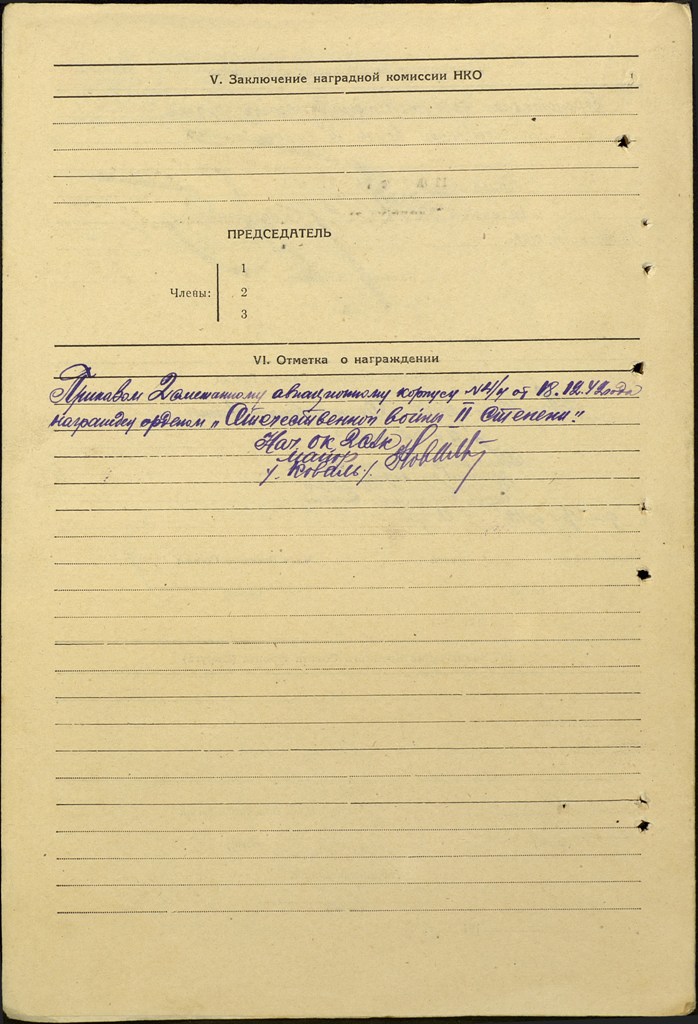 V. Заключение наградной комиссии НКО
ПРЕДСЕДАТЕЛЬ
Члены:
1
2
3
VI. Отметка о награждении
Приказом 2 смешанному авиационному корпусу № 4/н от 18.12.42 года
награжден орденом „Отечественной войны II степени".
Нач ОК 2 САК
майор
/. Коваль /. Коваль